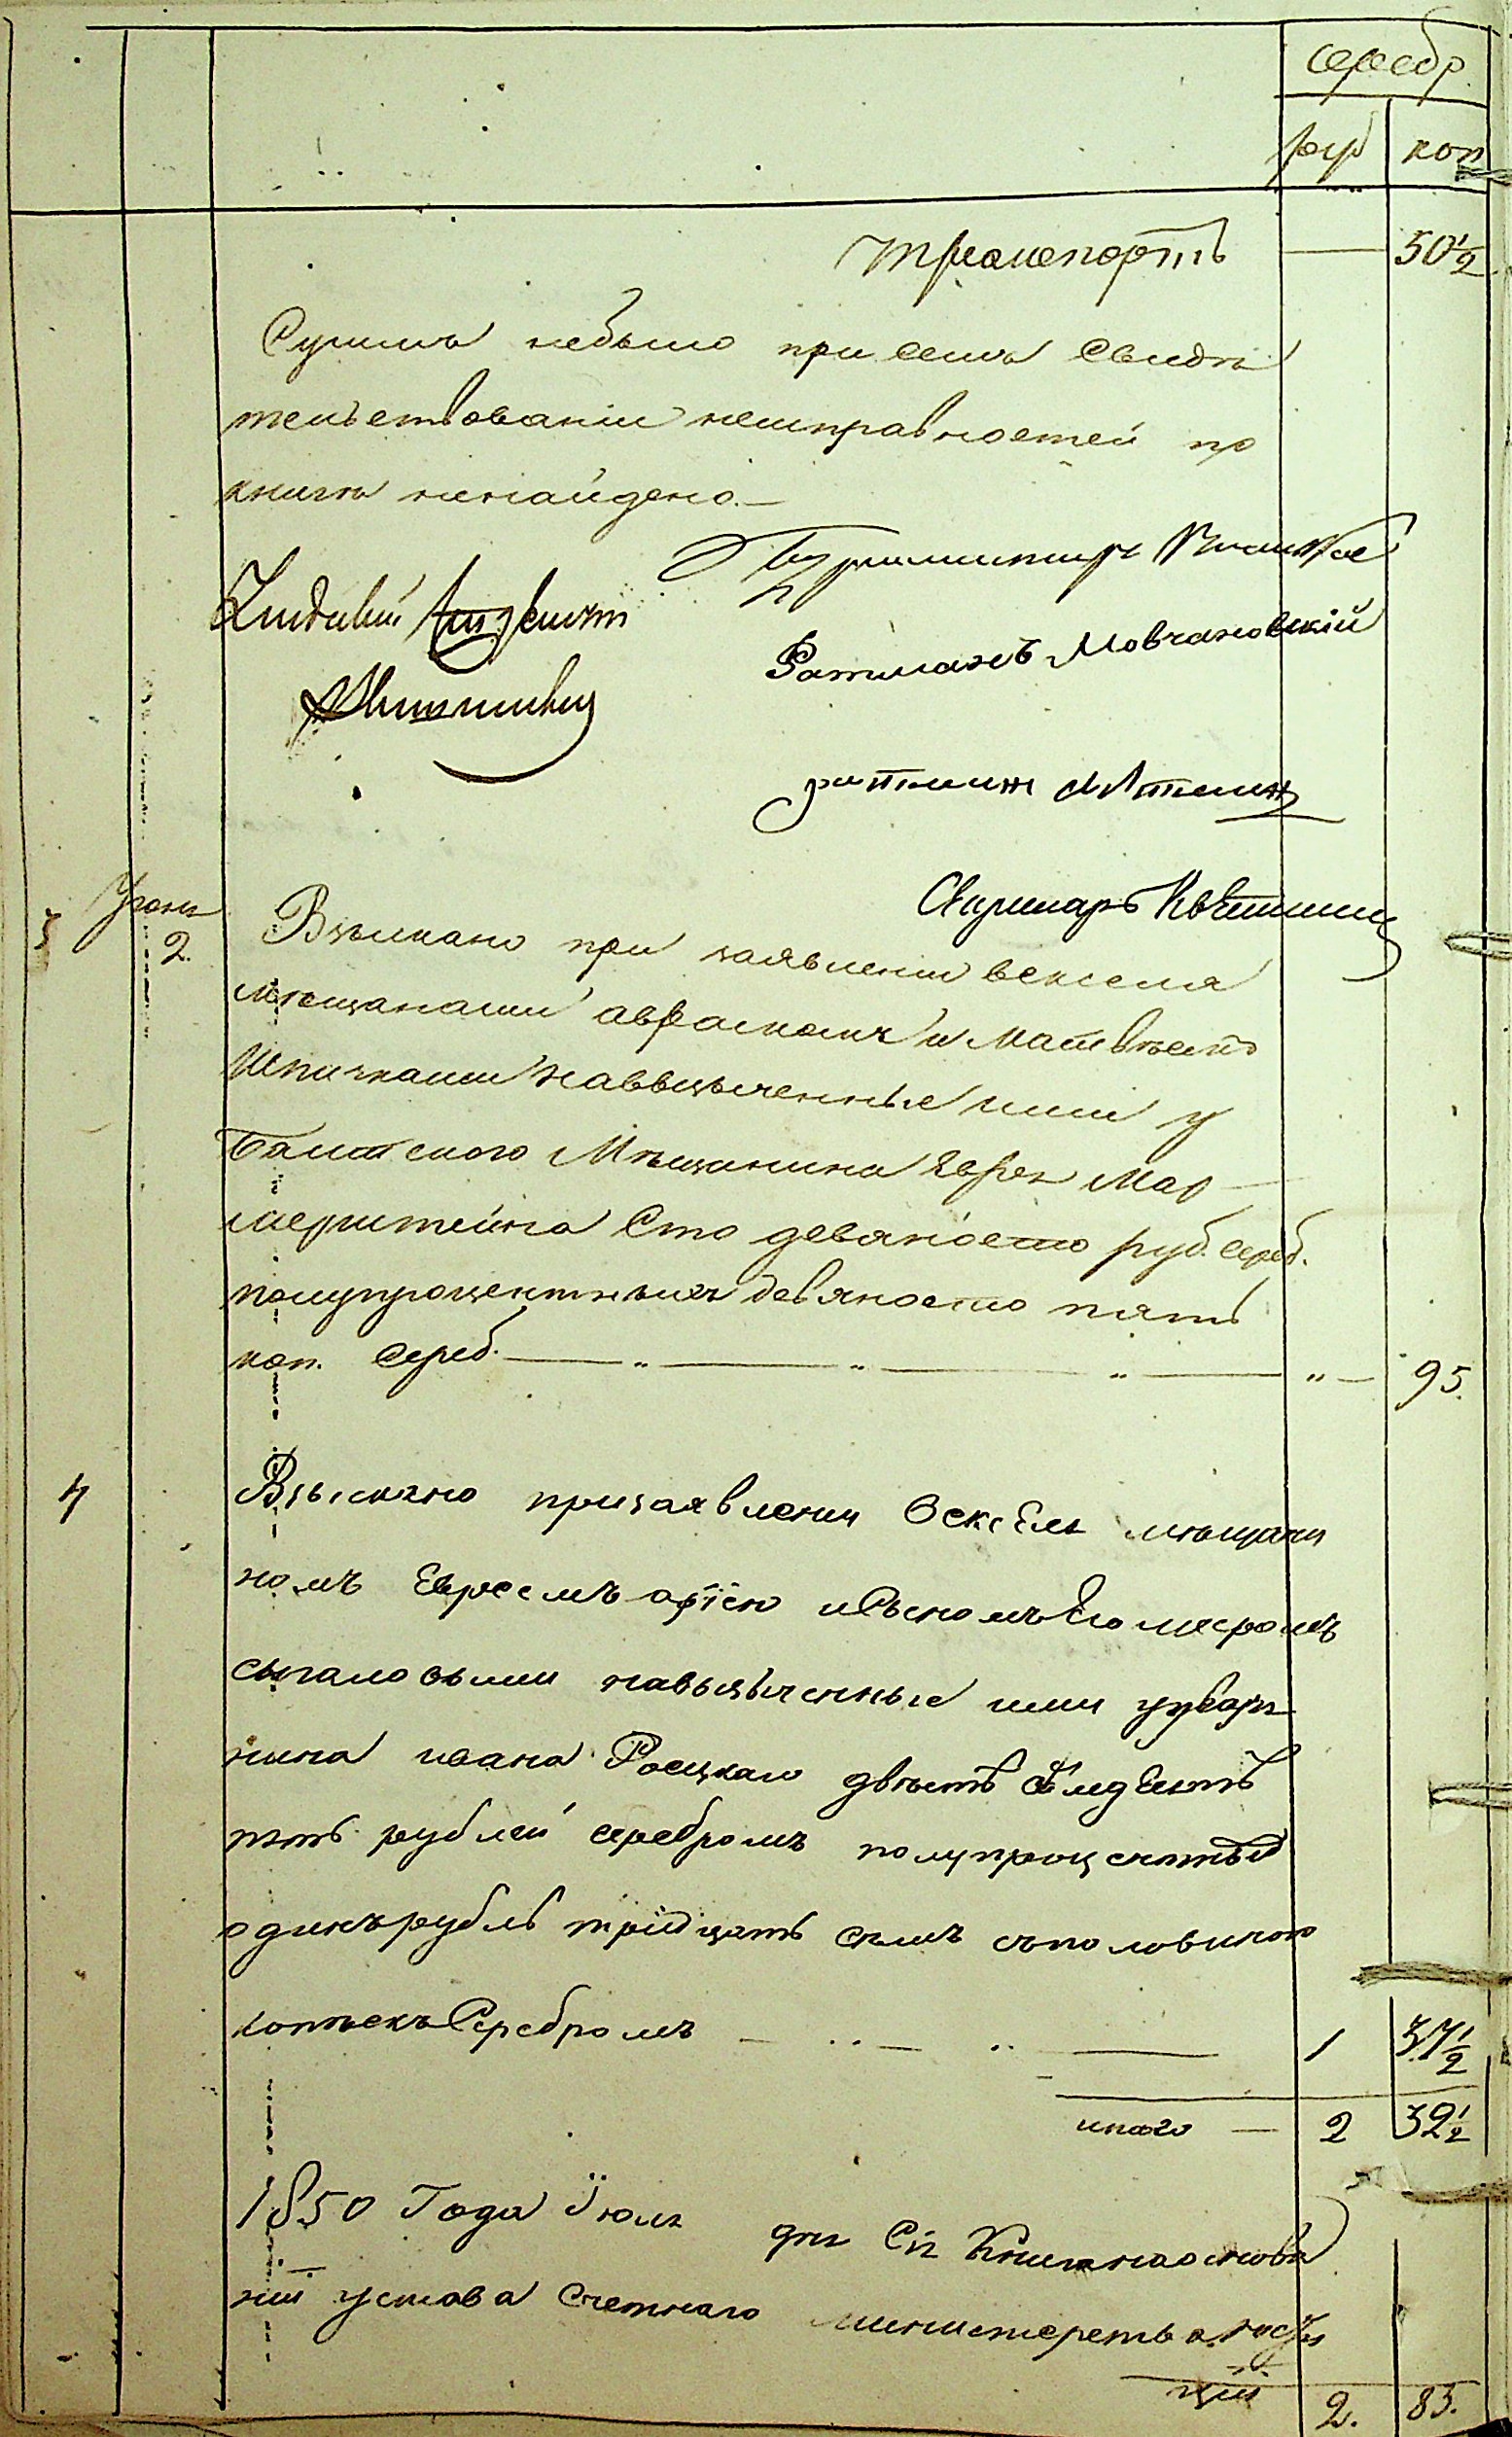 серебр.
руб коп
транспортъ — 50½
Суммъ небыло при семъ Свидѣ
тельствованіи неисправностей по
книги ненайдено.—
Бургомистръ
Ратманъ Мовчановскій
ратманъ
Секретаръ
3 2. Взыскано при заявленіи векселя
мѣщанами Аврамомъ и Матвѣемъ
Шпичками навыданные ими у
Балтского Мѣщанина Еврея Мар
мерштейна Сто девяносто руб. сереб.
полупроцентныхъ девяносто пять
коп. Сереб. — „ — „ — „ — „ — 95.
4 Взыскано призаявлении векселя мѣщани
номъ Евреемъ иСыномъ Его
навыданные ими удворя
нина ивана Росцкаго двѣсти семдесятъ
пять рублей серебромъ полупроцентныхъ
одинъ рубль тридцать семъ съполовиною
копѣекъ Серебромъ — „ — „ — 1 37½
итого — 2 32½
1850 Года Июля дня Сія Книга наоснова
нии устава Счетнаго министерства
ціи 2. 83.